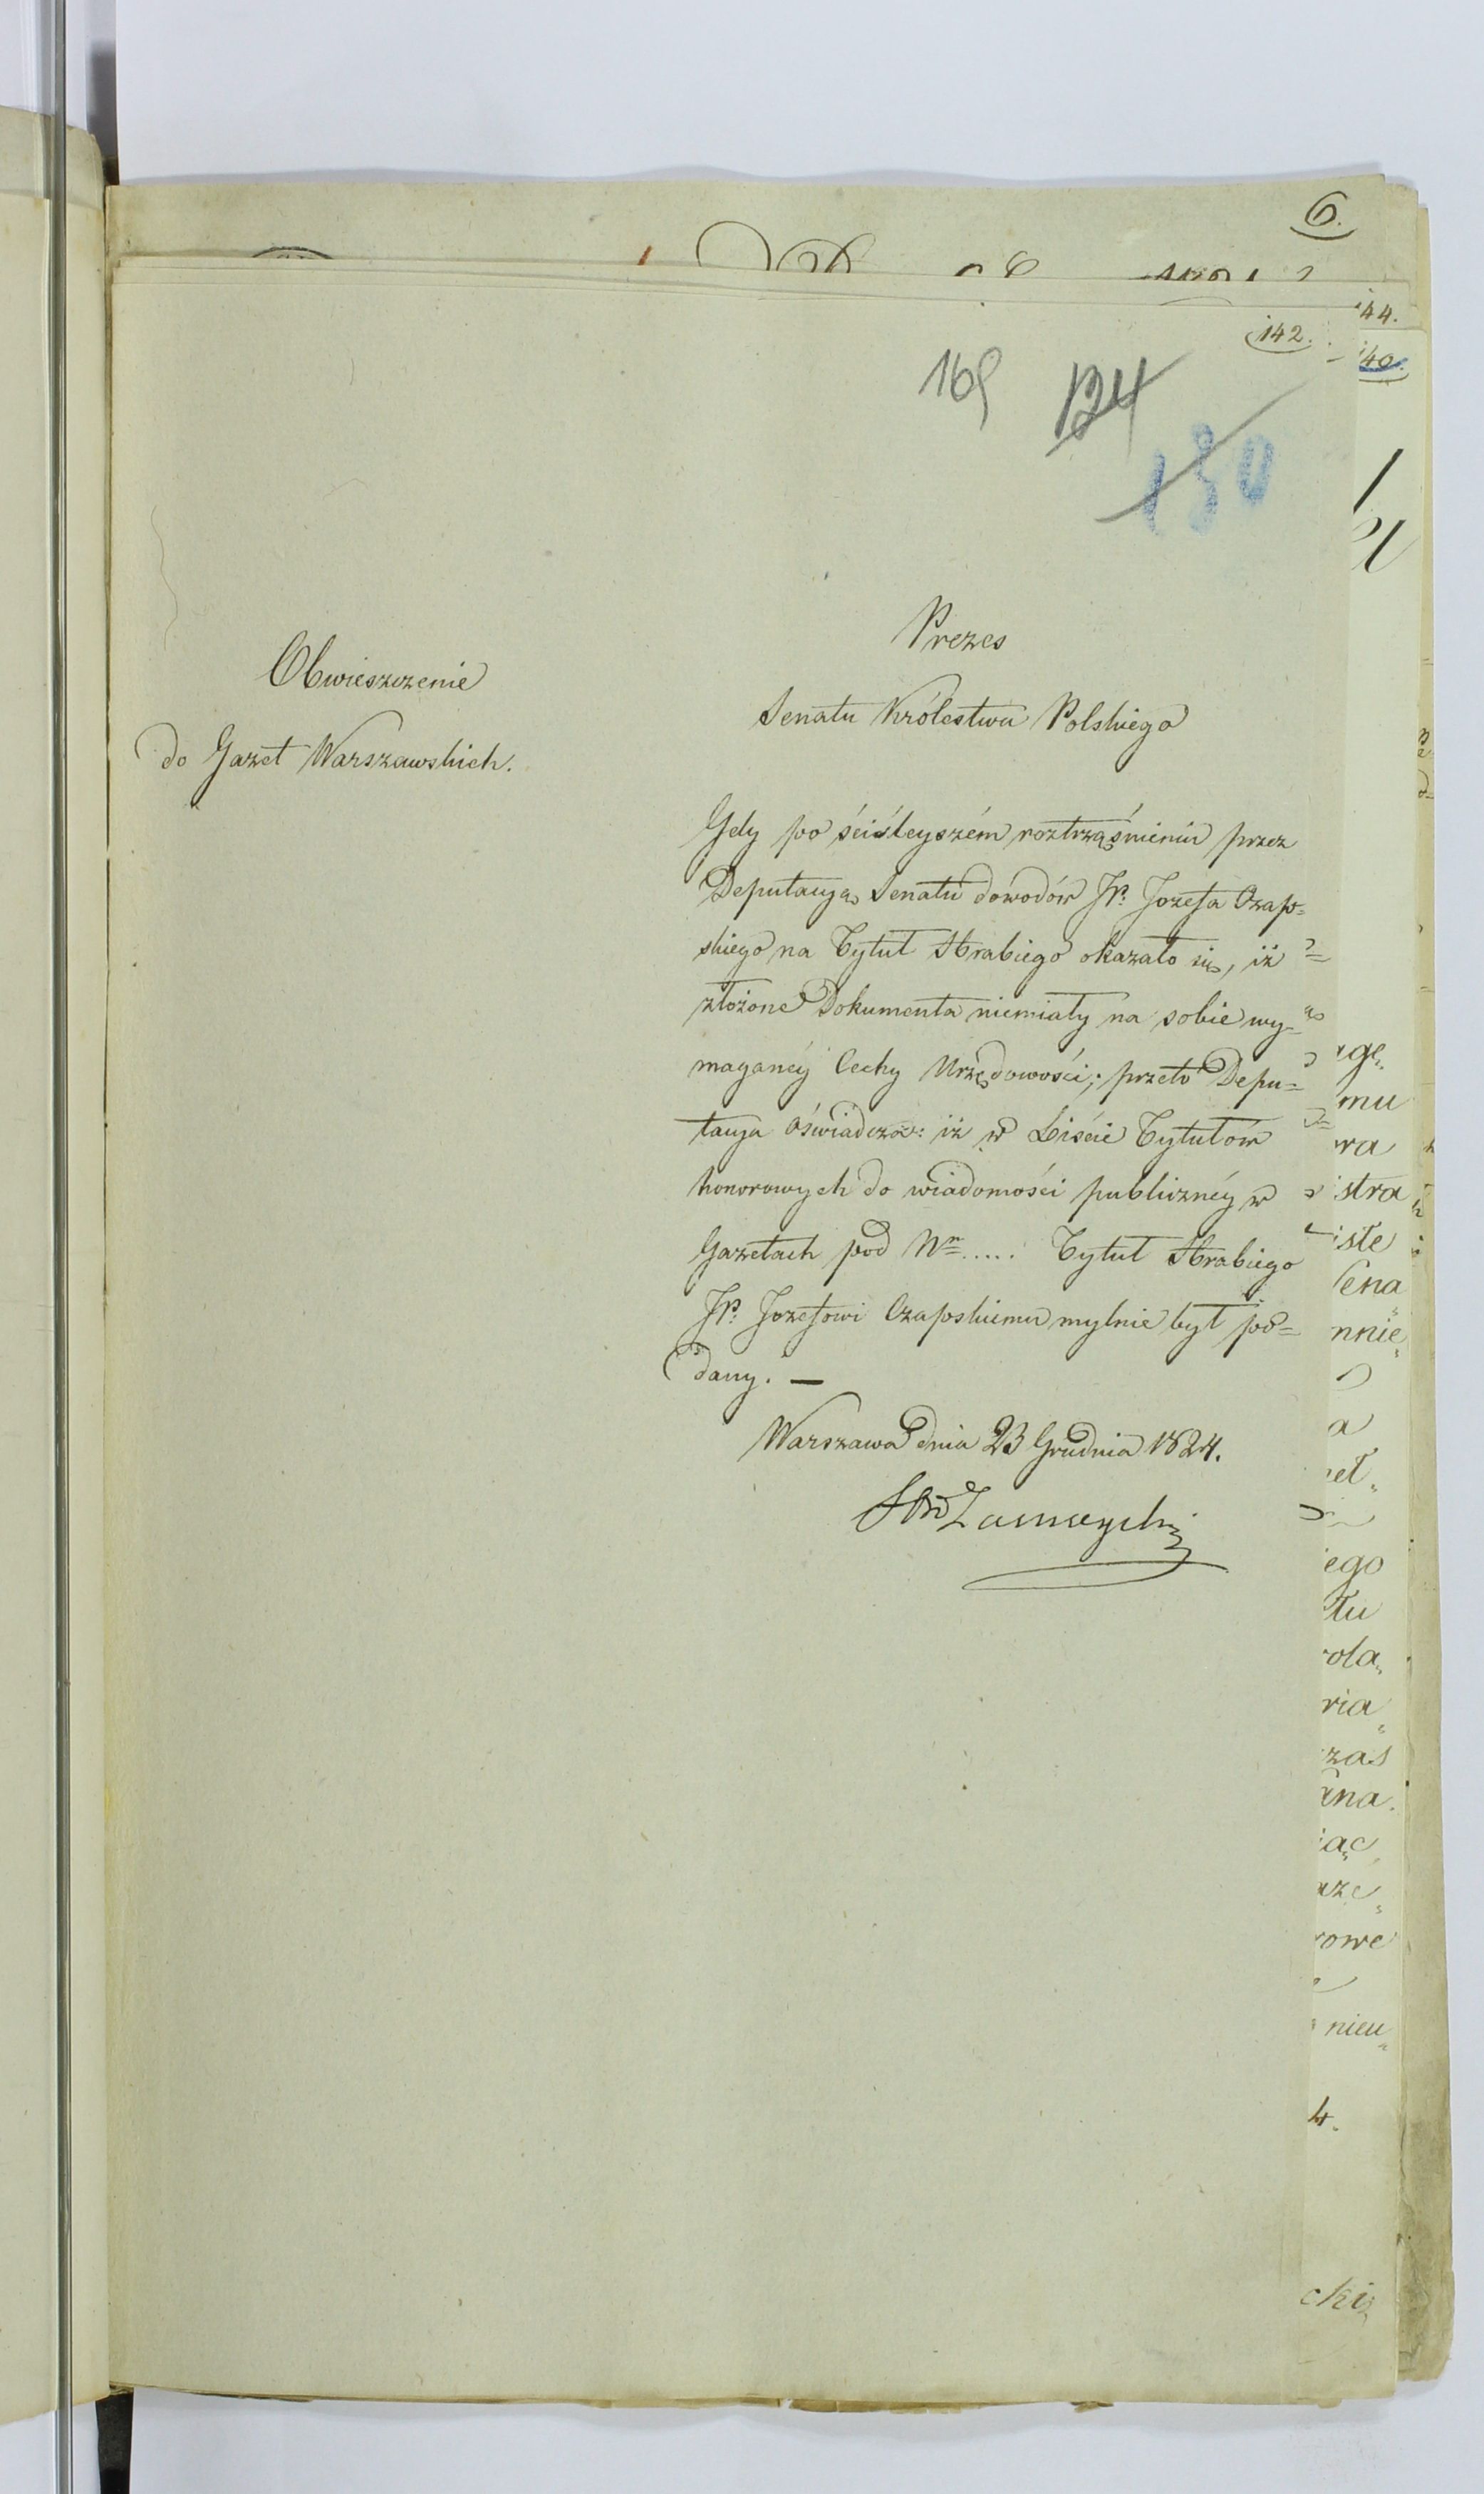 6.
44.
142.
140.
169 134
130
Obwieszczenie
do Gazet Warszawskich.
Prezes
Senatu Królestwa Polskiego
Gdy po ściśleyszém roztrząśnieniu przez
Deputacyą Senatu dowodów JP. Jozefa Czap=
skiego na Tytuł Hrabiego okazało się, iż
złożone Dokumenta niemiały na sobie wy=
maganéy Cechy Urzędowości; przeto Depu=
tacya oświadcza: iż w Liście Tytułów
honorowych do wiadomości publicznéy w
Gazetach pod Nr..... Tytuł Hrabiego
JP. Jozefowi Czapskiemu mylnie był po=
dany. —
Warszawa dnia 23 Grudnia 1824.
Zamoyski
mu
ra
stra
iste
Sena
nnie
a
ego
tu
rola
ria
zas
ana.
iąc
aze
rowe
nieu
4.
cki